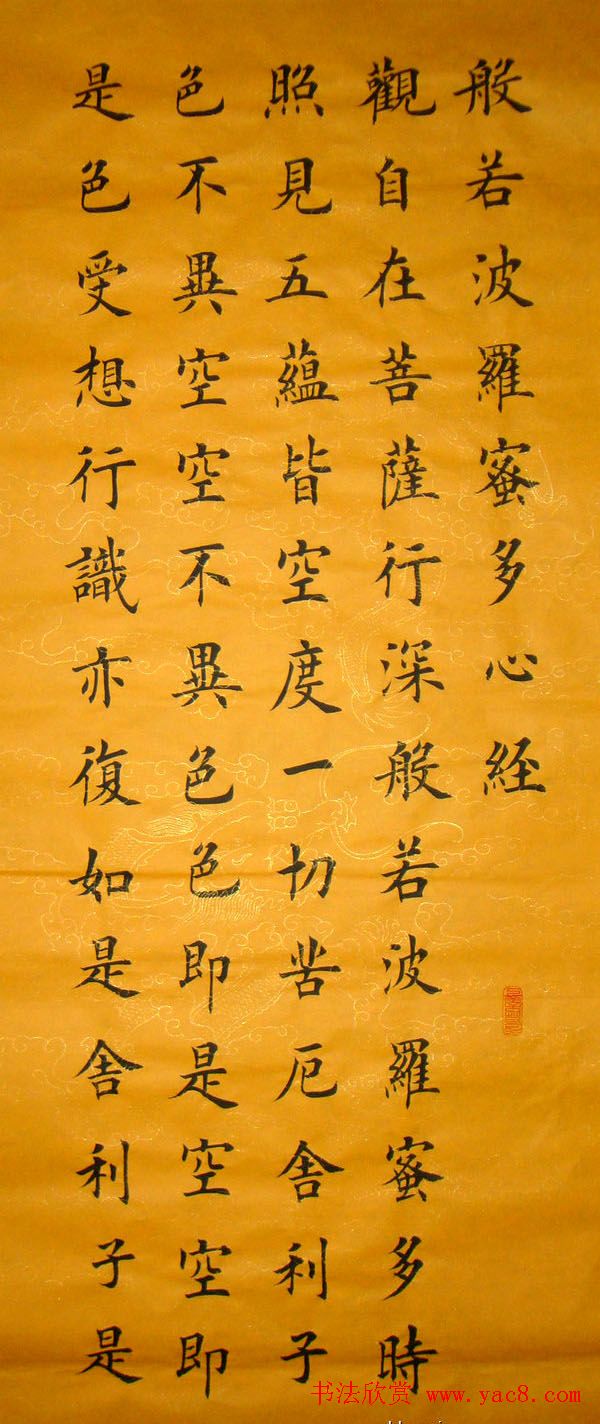 般若波羅蜜多心経
觀自在菩薩行深般若波羅蜜多時
照見五蘊皆空度一切苦厄舍利子
色不異空空不異色色即是空空即
是色受想行識亦復如是舍利子是
书法欣赏 www.yac8.com